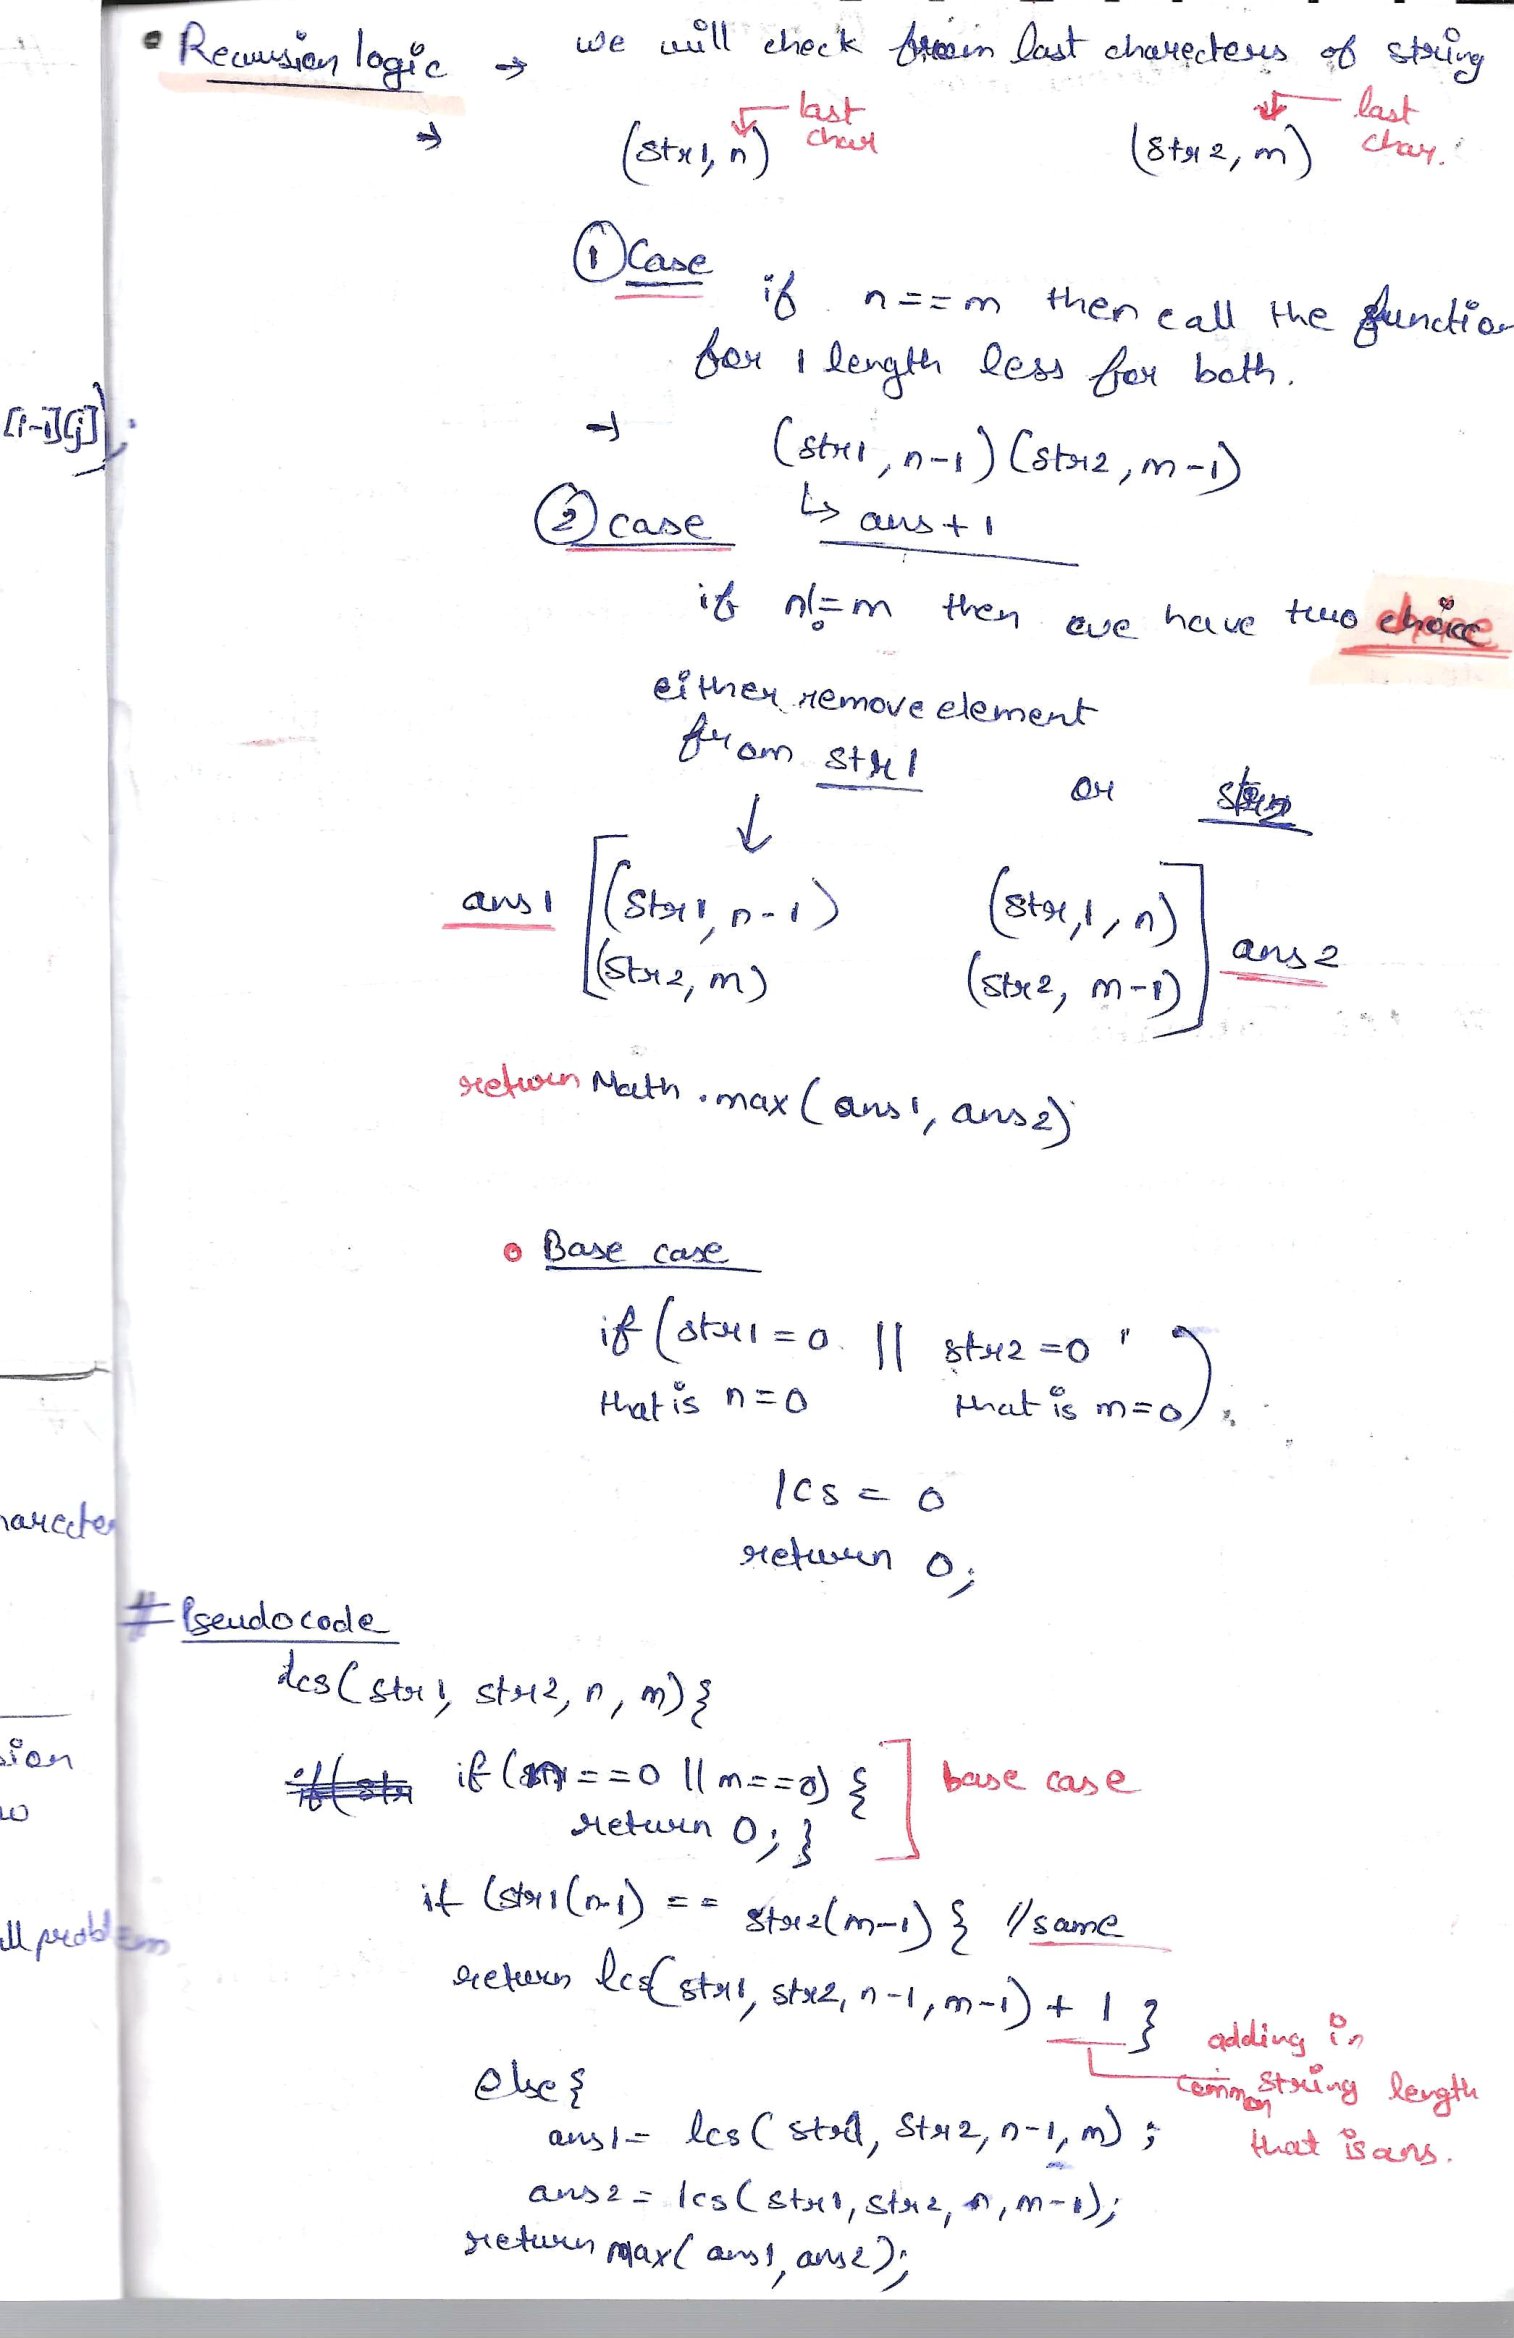 • Recursion logic → we will check from last charecters of string
→ (str1, n) last char (str2, m) last char.
① Case
if n==m then call the function
for 1 length less for both.
[i-1][j]);
→ (str1, n-1) (str2, m-1)
↳ ans+1
② case
if n!=m then we have two choice
either remove element
from str1 or str2
↓
ans1 [(str1, n-1) (str2, m)
(str1, n) (str2, m-1)] ans2
return Math.max(ans1, ans2)
• Base case
if (str1=0 || str2=0
that is n=0 that is m=0).
lcs = 0
harecter
return 0;
# Pseudocode
lcs(str1, str2, n, m){
sion
if(str if (n==0 || m==0) { base case
return 0; }
if (str1(n-1) == str2(m-1) { //same
ll problem
return lcs(str1, str2, n-1, m-1) + 1 }
adding in
common string length
that is ans.
else{
ans1= lcs(str1, str2, n-1, m);
ans2= lcs(str1, str2, n, m-1);
return max(ans1, ans2);